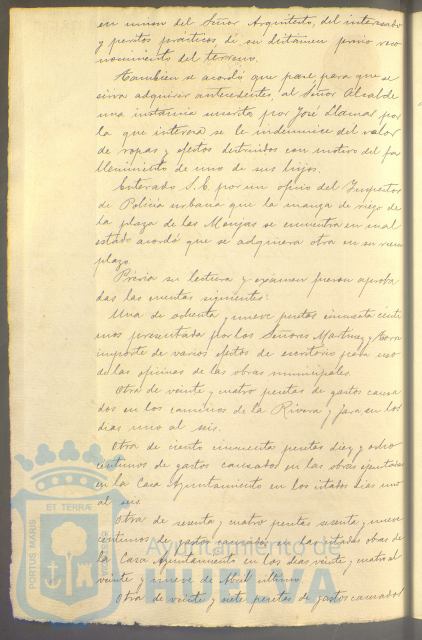 en union del Señor Arquitecto, del interesado
y peritos prácticos dé su dictámen prévio reco
nocimiento del terreno.
Tambien se acordó que pase para que se
sirva adquirir antecedentes, al Señor Alcalde
una instancia suscrita por José Llamar por
la que interesa se le indemnice del valor
de ropas y efectos destruidos con motivo del fa
llecimiento de uno de sus hijos.
Enterado S.E. por un oficio del Inspector
de Policía urbana que la manga de riego de
la plaza de las Monjas se encuentra en mal
estado acordó que se adquiera otra en su reem
plazo.
Prévia su lectura y exámen fueron aproba
das las cuentas siguientes:
Una de ochenta y nueve pesetas cincuenta cénti
mos presentada por los Señores Martinez y Mora
importe de varios efectos de escritorio para uso
de las oficinas de las obras municipales.
Otra de veinte y cuatro pesetas de gastos causa
dos en los caminos de la Rivera y jara en los
dias uno al seis.
Otra de ciento cincuenta pesetas diez y ocho
céntimos de gastos causados en las obras ejecutadas
en la Casa Ayuntamiento en los citados dias uno
al seis.
Otra de sesenta y cuatro pesetas sesenta y nueve
céntimos de gastos causados en las citadas obras de
la Casa Ayuntamiento en los dias veinte y cuatro al
veinte y nueve de Abril ultimo.
Otra de veinte y siete pesetas de gastos causados
ET TERRAE
PORTUS MARIS
Ayuntamiento de
HUELVA